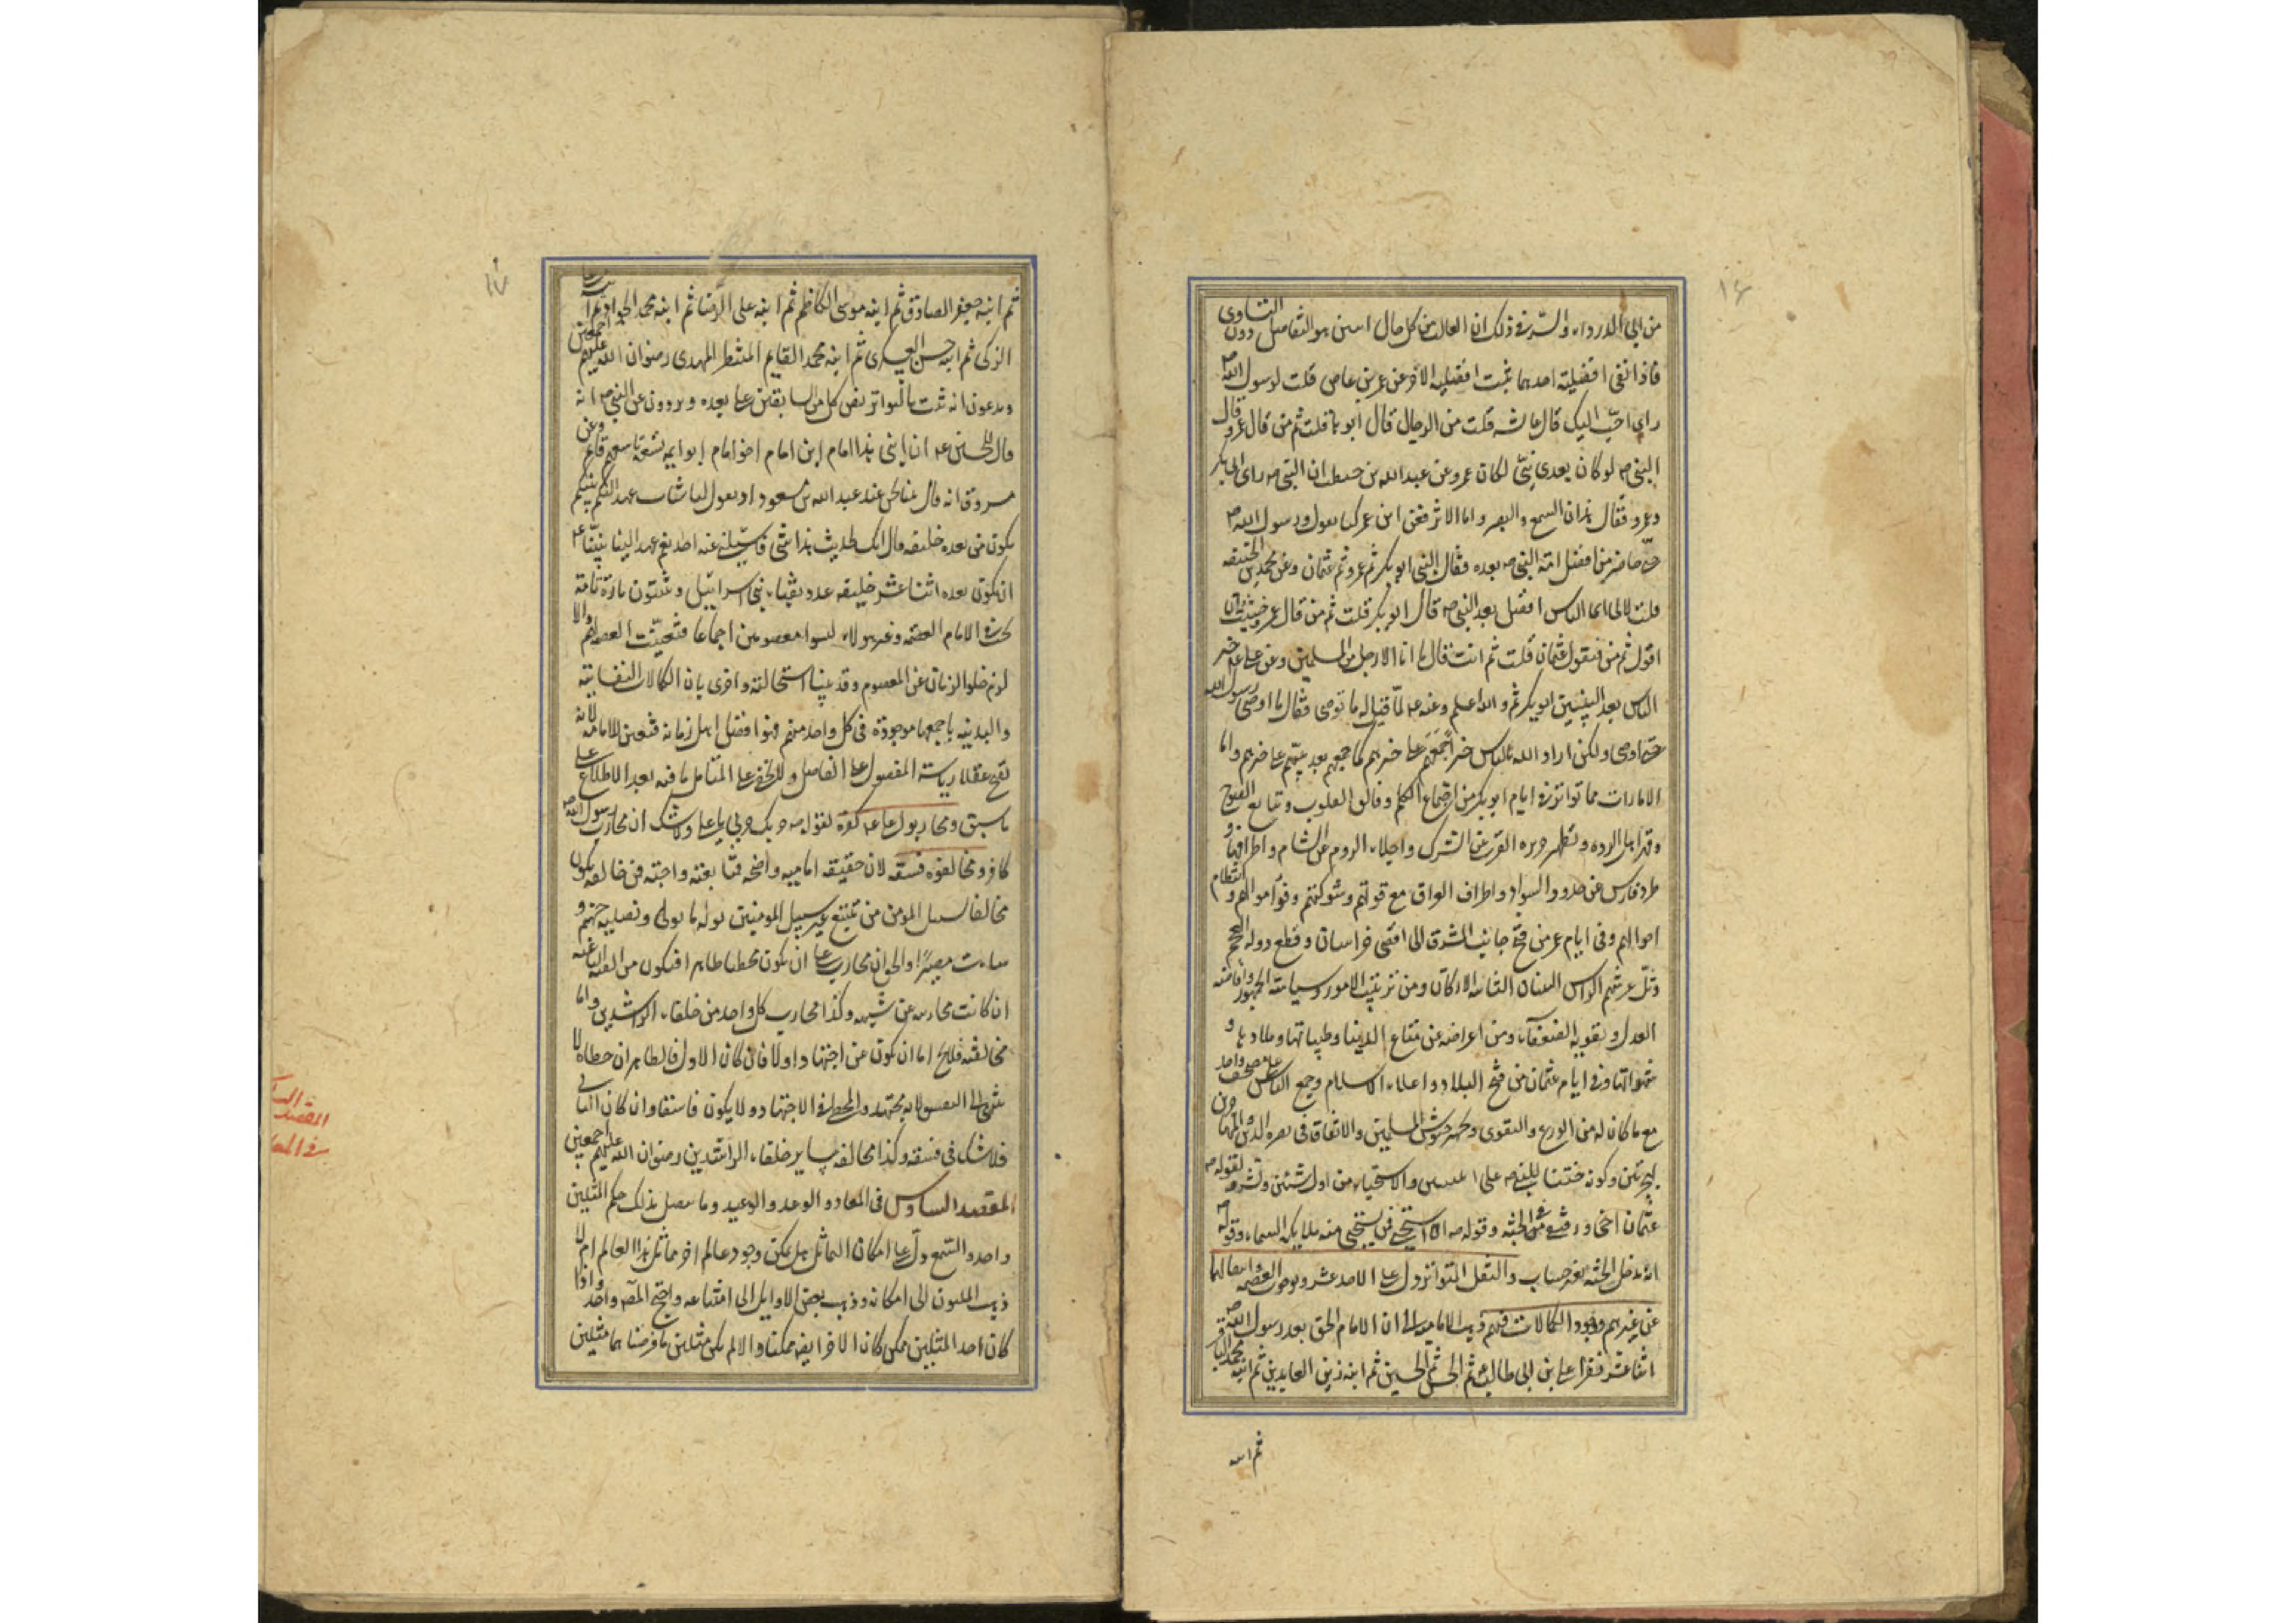 ١٦
من ابي الدرداء والسر في ذلك ان الغالب من كل حال اسن هو التفاضل دون التساوى
فاذا نفى افضلية احدهما ثبت افضلية الآخر عن عمرو بن عاص قلت لرسول الله ص
اى احب اليك قال عايشه قلت من الرجال قال ابوها قلت ثم من قال عمر وقال
النبى ص لو كان بعدى نبىّ لكان عمر وعن عبدالله بن حنطب ان النبى ص راى ابابكر
وعمر فقال هذان السمع والبصر واما الاثر فعن ابن عمر كنا نقول ورسول الله ص
حىّ حاضر من افضل امة النبى ص بعده فقال النبى ابوبكر ثم عمر ثم عثمان وعن محمد بن الحنيفه
قلت لابى اىما الناس افضل بعد النبى ص قال ابوبكر قلت ثم من قال عمر وخشيت ان
اقول ثم من فيقول عثمان قلت ثم انت فقال ما انا الا رجل من المسلمين وعن على ع خير
الناس بعد النبيين ابوبكر ثم والله اعلم وعنه ع لمّا قيل له ما توصى فقال ما اوصى رسول الله
حتى اوصى ولكن اراد الله بالناس خيرا جمعهم على خيرهم كما جمعهم بعد نبيهم على خيرهم واما
الامارات فما تواتر فى ايام ابوبكر من اجتماع الكلم وتألف القلوب وتتابع الفتوح
وقهر اهل الرده وتطهير جزيره العرب عن الشرك واجلاء الروم عن الشام واطرافها و
طرد فارس عن حدود السواد واطراف العراق مع قوتهم وشوكتهم وفور اموالهم وانتظام
احوالهم وفى ايام عمر من فتح جانب المشرق الى اقصى خراسان وقطع دوله العجم
وثلّ عرشهم الراس البنيان الثابت الاركان ومن ترتيب الامور وسياسة الجمهور وافاضه
العدل وتقويه الضعفآء ومن اعراضه عن متاع الدنيا وطيباتها وملاذها و
شهواتها وفى ايام عثمان من فتح البلاد واعلاء الاسلام وجمع الناس على مصحف واحد
مع ما كان له من الورع والتقوى وتجهيز جيوش المسلمين والانفاق فى نصره الدين والمهاجره
هجرتين وكونه ختنا للنبى ص على ابنتين والاستحياء من ادنى شئين وتشرفه لقوله ص
عثمان اخى ورفيقى فى الجنّه وقوله ص الا استحيى ممن يستحيى منه ملايكه السماء وقوله ص
انه يدخل الجنّه بغير حساب والنقل المتواتر دل على الاحد عشر ووجوب العصمه وانتفائها
عن غيرهم ووجود الكمالات فيهم ذهب الاماميه الى ان الامام الحق بعد رسول الله ص
اثناعشر نفرا على بن ابى طالب ع ثم الحسن ثم الحسين ثم ابنه زين العابدين ثم ابنه محمد الباقر
ثم ابنه
١٧
ثم ابنه جعفر الصادق ثم ابنه موسى الكاظم ثم ابنه على الرضا ثم ابنه محمد الجواد ثم ابنه على
الزكى ثم ابنه حسن العسكرى ثم ابنه محمد القايم المنتظر المهدى رضوان الله عليهم اجمعين
ويدعون انه ثبت بالتواتر نص كل من السابقين على بعده ويروون عن النبى ص انه
قال للحسين ع ان ابنى هذا امام ابن امام اخو امام ابو ايمه تسعة تاسعهم قايمهم وعن
مسروق انه قال بينا نحن عند عبد الله بن مسعود اذ يقول لنا شاب عهد اليكم نبيكم
يكون من بعده خليفه قال انك لحديث هذا شئ ما سئلنى عنه احد نعم عهد الينا نبيّنا ع
ان يكون بعده اثنا عشر خليفه عدد نقباء بنى اسراييل ويثبتون تارة تانه
يجب فى الامام العصمه وغير هولاء ليسوا معصومين اجماعا فتعيّنت العصمه لهم والا
لزم خلو الزمان عن المعصوم وقد بيّنا استحالته واخرى بان الكمالات النفسانيه
والبدنيه باجمعها موجودة فى كل واحد منهم فهو افضل اهل زمانه فتعين للامامه لانه
يقبح عقلا رياسة المفضول على الفاضل ولا يخفى على المتامل ما فيه بعد الاطلاع على
ما سبق ومحاربوا على ع كفرة لقوله ص حربك حربى يا على ولا شك ان محارب رسول الله ص
كافر ومخالفوه فسقه لان حقيقه امامته واضحه فمتابعته واجبه فمن خالفه يكون
مخالفا لسبيل المومن من يتبع غير سبيل المومنين نوله ما تولى ونصليه جهنم و
ساءت مصيرًا والحق ان محارب على ان يكون مخطيا ظاهرا فيكون من الفئه الباغيه
ان كانت محاربه عن شبهه وكذا محارب كل واحد من خلفاء الراشدين واما
مخالفته فلا يخ اما ان يكون عن اجتهاد اولا فان كان الاول فالظاهر ان خطاه لا
ينتهى الى الفسق لانه مجتهد والخطا فى الاجتهاد ولا يكون فاسقا وان كان الثانى
فلا شك فى فسقه وكذا مخالفه ساير خلفاء الراشدين رضوان الله عليهم اجمعين
المقصد السادس فى المعاد والوعد والوعيد وما يتصل بذلك حكم المثلين
واحد والسمع دل على امكان التماثل هل يمكن وجود عالم اخر مماثل لهذا العالم ام لا
ذهب المليون الى امكانه وذهب بعض الاوايل الى امتناعه واحتج المص واذا
كان احد المثلين ممكن كان الاخر ايضه ممكنا والا لم يكن مثلين ما فرضناهما مثلين
المقصد السا
فى المعا